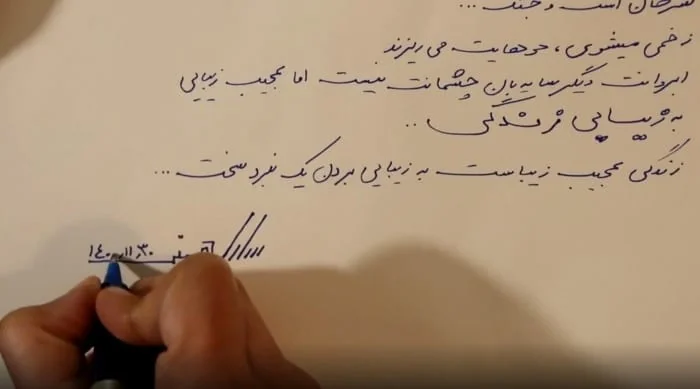 است و جنگ ...
زخمی میشوی، موهایت می ریزند
ابروانت دیگر سایه بان چشمانت نیست اما عجیب زیبایی
به زیبایی فرشدگی ..
زندگی عجیب زیباست به زیبایی بردن یک نبرد سخت ...
۱۴۰۰.۱۱.۳۰